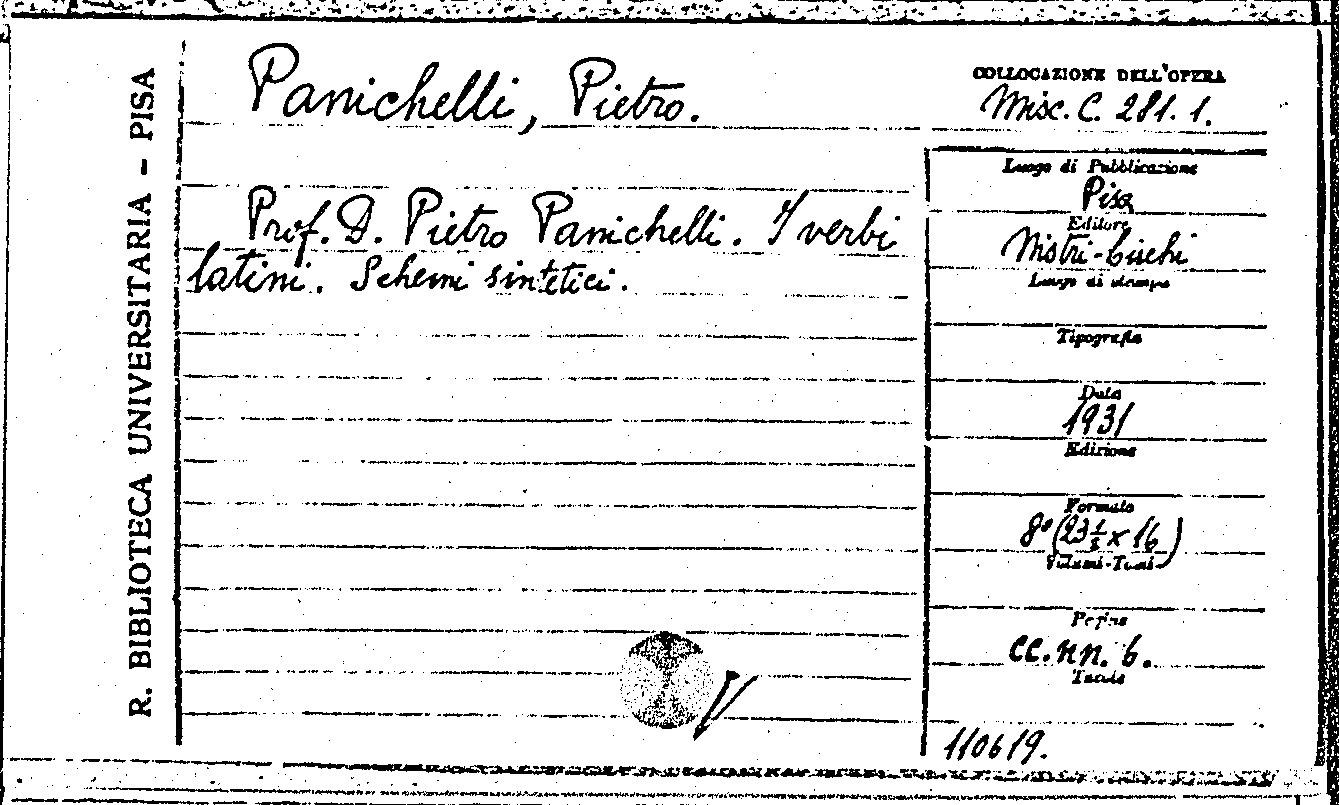 R. BIBLIOTECA UNIVERSITARIA - PISA
Panichelli, Pietro.
Prof. D. Pietro Panichelli. I verbi
latini. Schemi sintetici.
COLLOCAZIONE DELL'OPERA
Misc. C. 281. 1.
Luogo di Pubblicazione
Pisa
Editore
Nistri-Lischi
Luogo di stampa
Tipografia
Data
1931
Edizione
Formato
8° (23 ½ x 16)
Volumi-Tomi
Pagine
cc. nn. 6.
Tavole
110619.